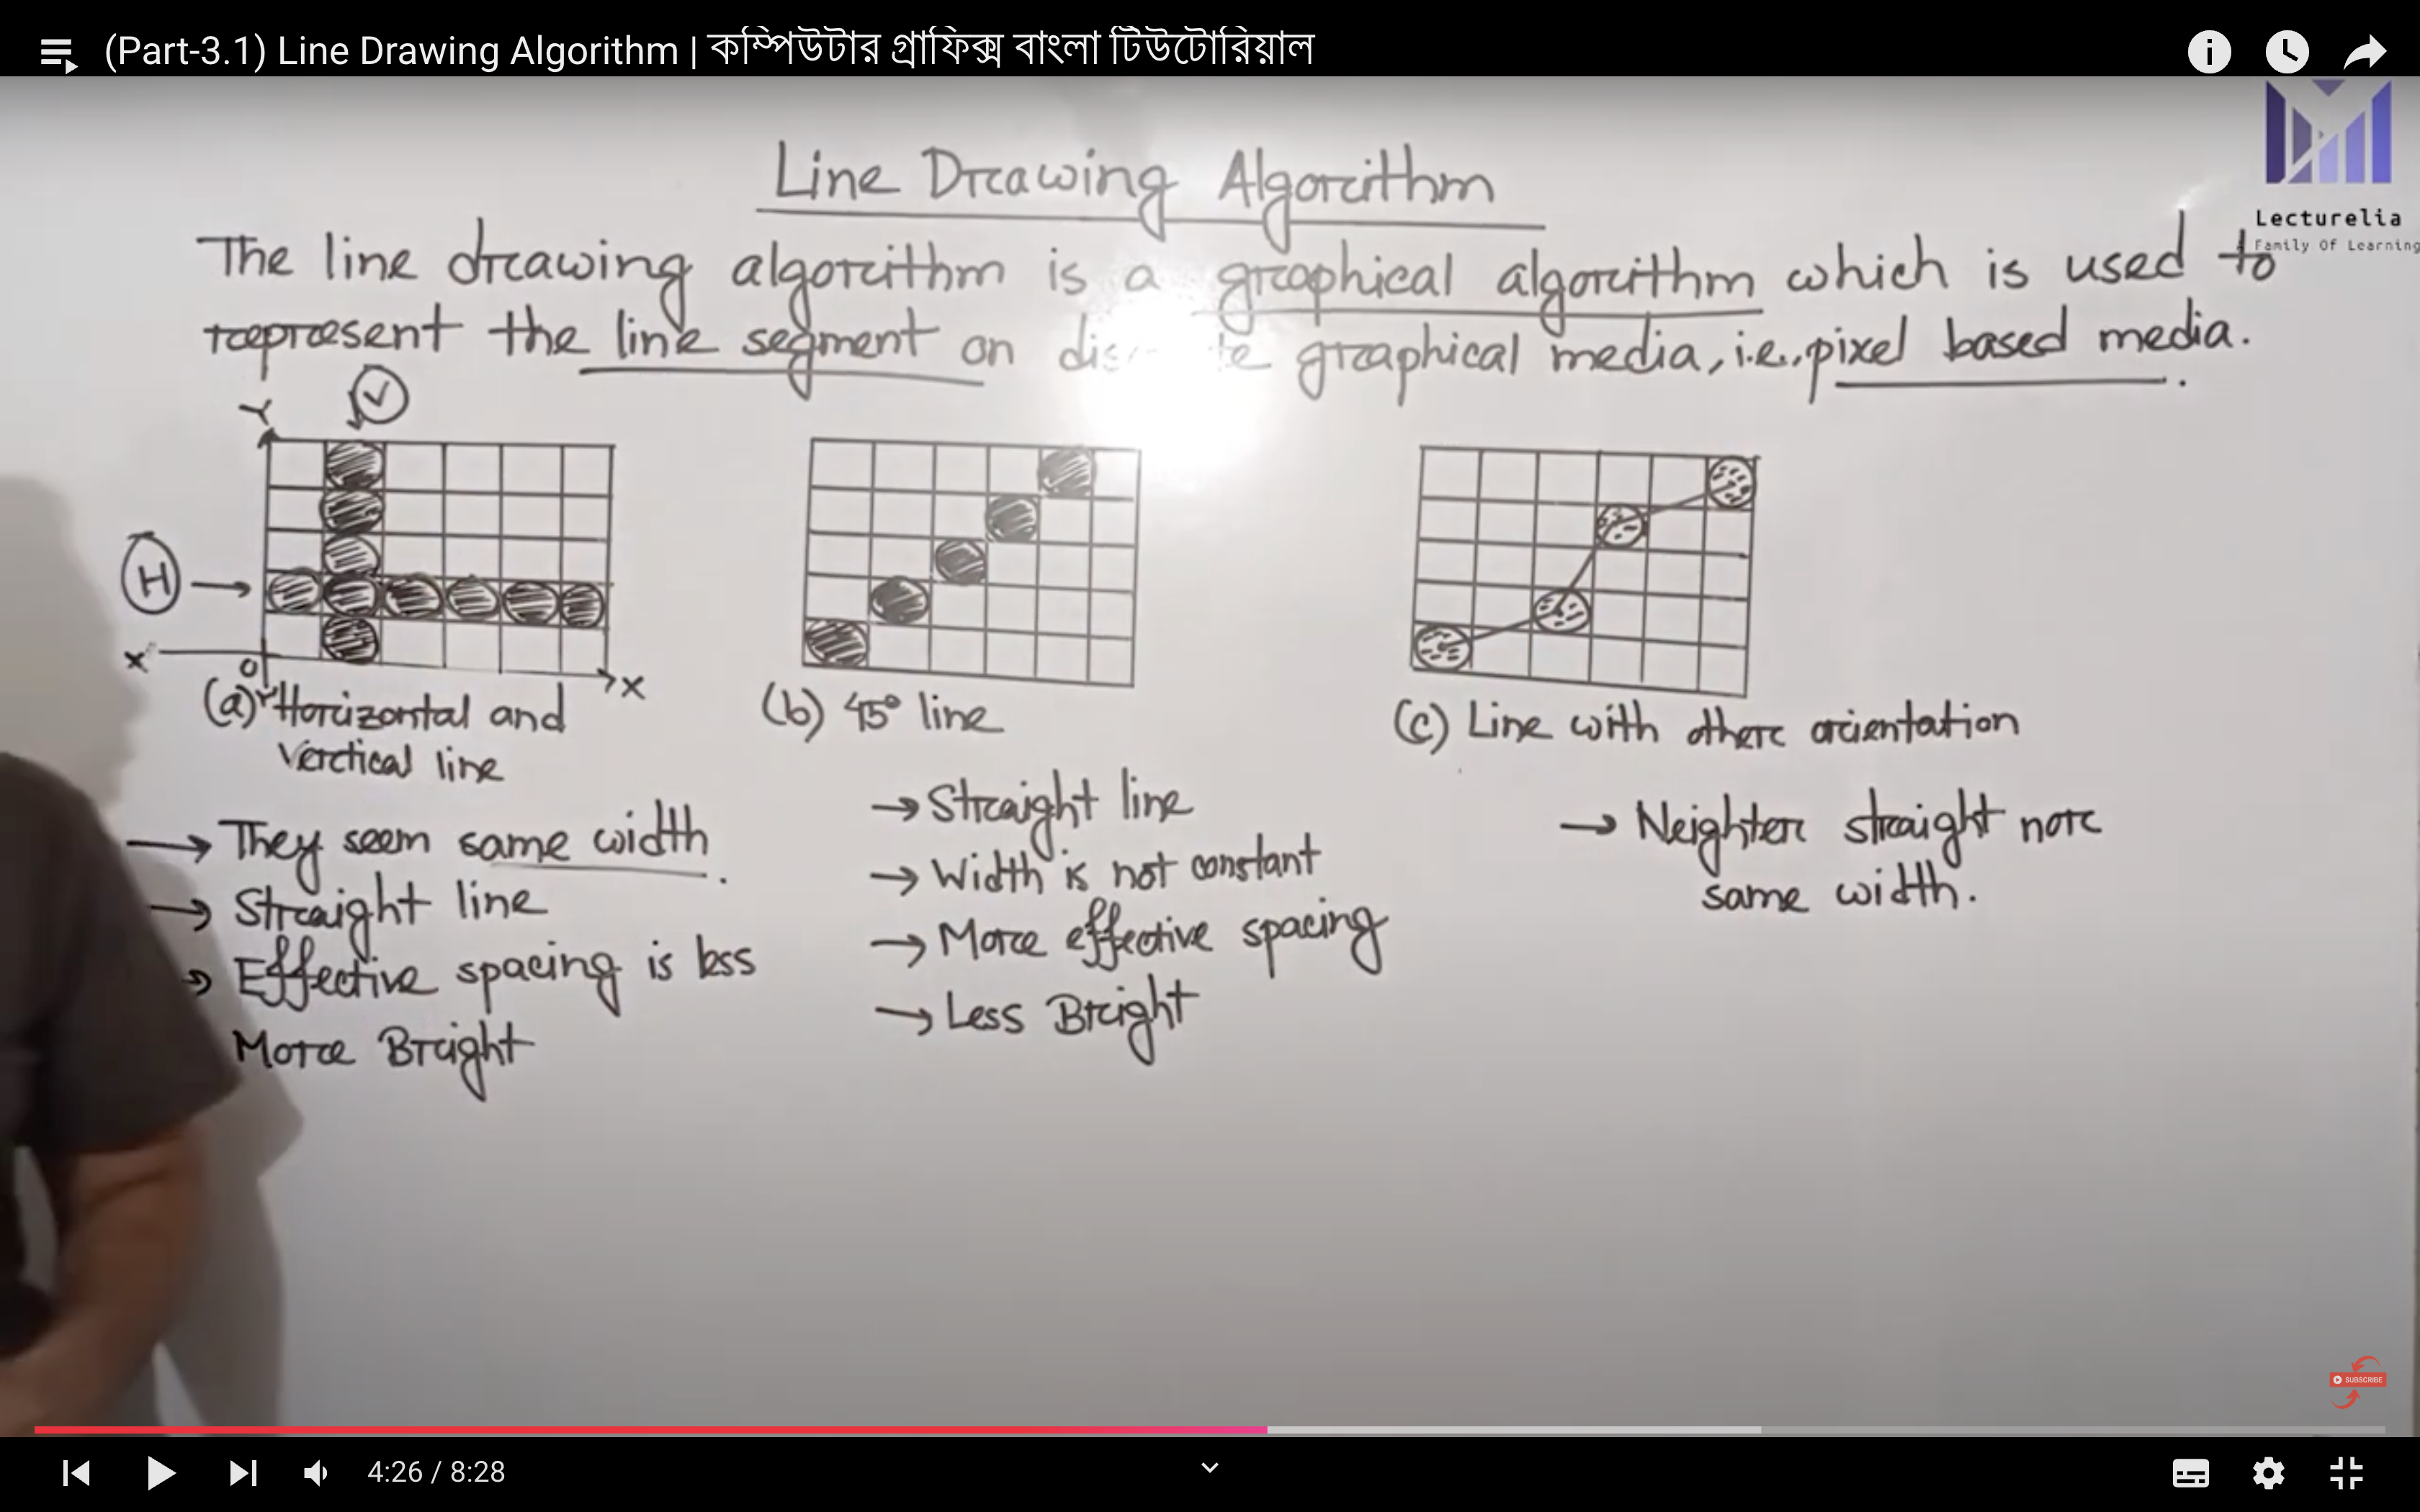 (Part-3.1) Line Drawing Algorithm | কম্পিউটার গ্রাফিক্স বাংলা টিউটোরিয়াল
Lecturelia
Family Of Learning
Line Drawing Algorithm
The line drawing algorithm is a graphical algorithm which is used to
represent the line segment on graphical media, i.e., pixel based media.
Y
V
H
X
O
X
Y'
(a) Horizontal and
Vertical line
→ They seem same width.
→ Straight line
→ Effective spacing is less
More Bright
(b) 45° line
→ Straight line
→ Width is not constant
→ More effective spacing
→ Less Bright
(c) Line with other orientation
→ Neighter straight nor
same width.
SUBSCRIBE
4:26 / 8:28